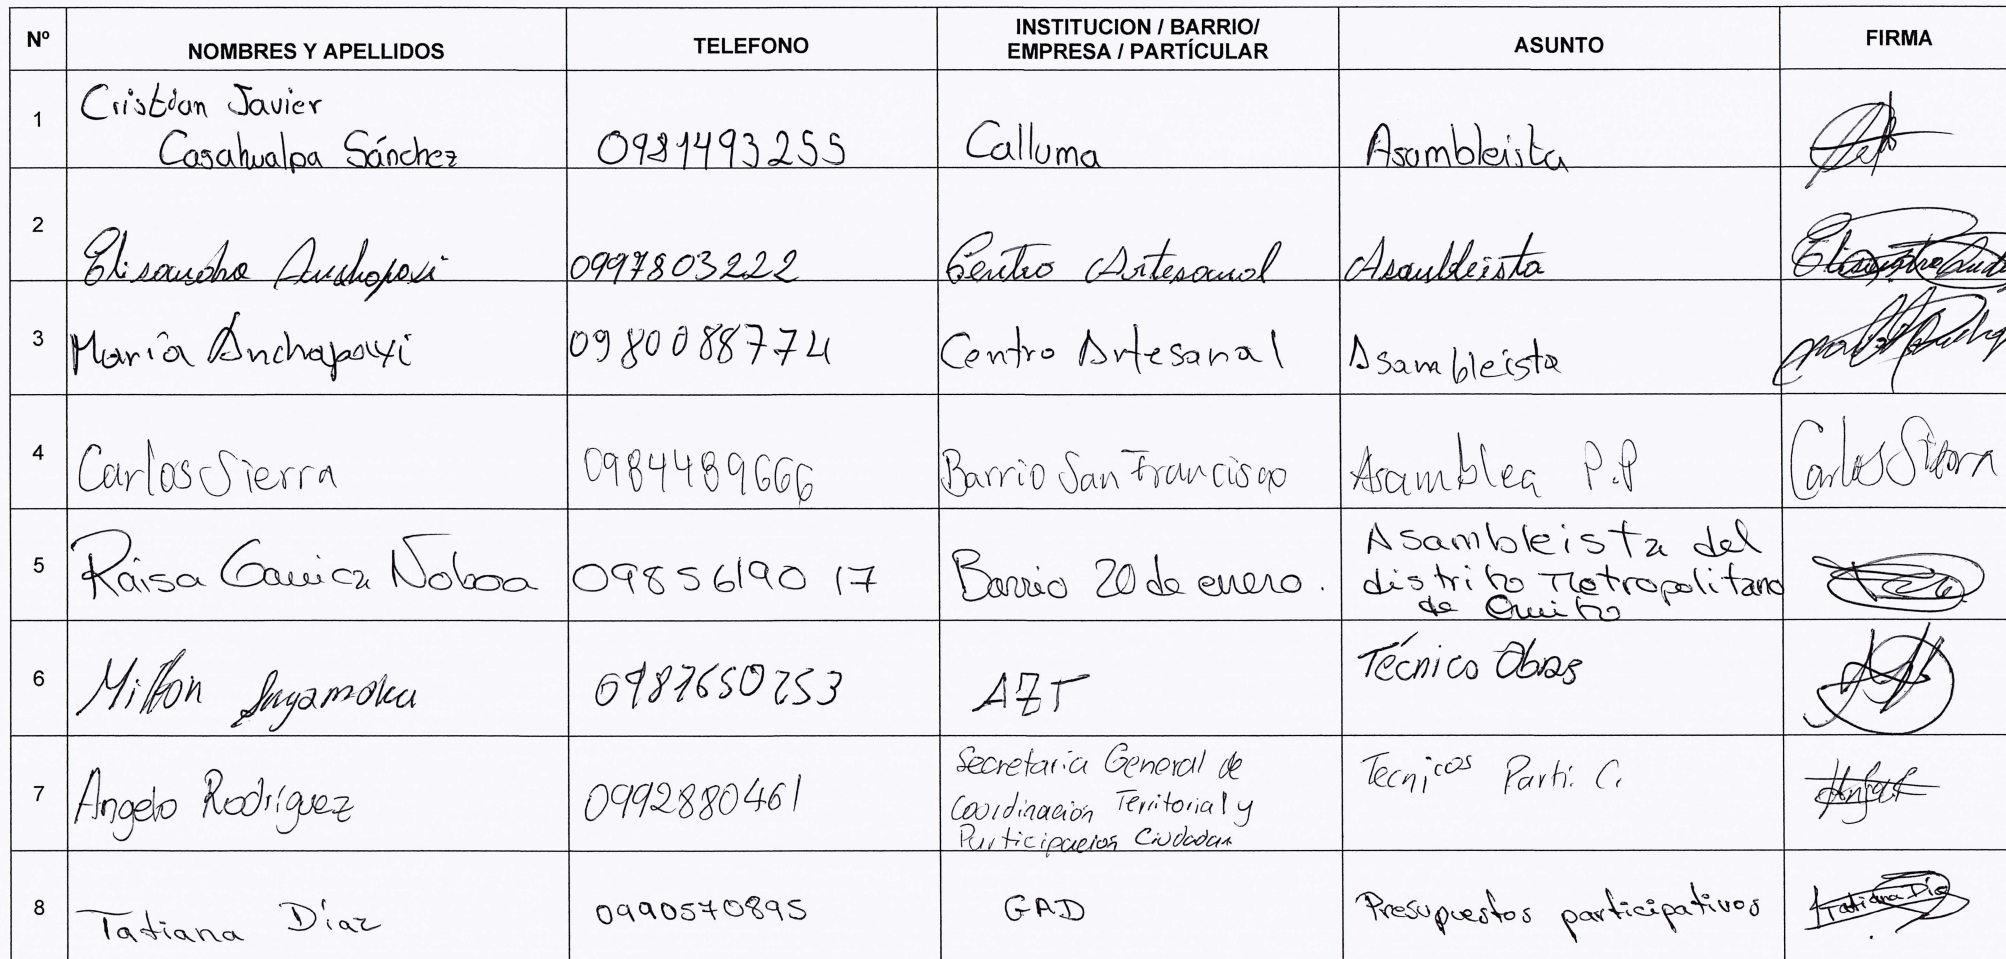 Nº NOMBRES Y APELLIDOS TELEFONO INSTITUCION / BARRIO/ EMPRESA / PARTÍCULAR ASUNTO FIRMA
1 Cristian Javier
Casahualpa Sánchez 0981493255 Calluma Asambleista
2 Elisandra Anchapaxi 0997803222 Centro Artesanal Asambleista
3 María Anchapaxi 0980088774 Centro Artesanal Asambleista
4 Carlos Sierra 0984489666 Barrio San Francisco Asamblea P.P Carlos Sierra
5 Raisa Gavica Noboa 0985619017 Barrio 20 de enero. Asambleista del
distrito Metropolitano
de Quito
6 Milton AZT Técnico Obras
7 Angelo Rodríguez 0992880461 Secretaria General de
Coordinación Territorial y
Participación Ciudadan Tecnicos Parti. C.
8 Tatiana Díaz 0990570895 GAD Presupuestos participativos Tatiana Día